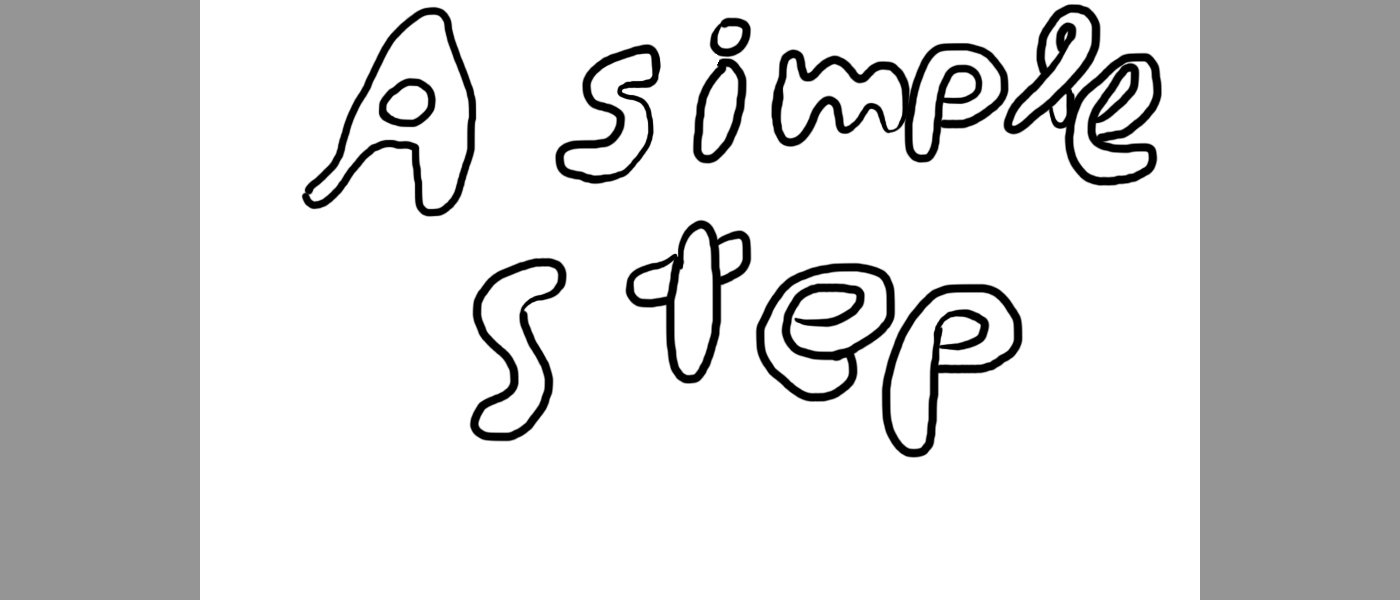 A simple
step